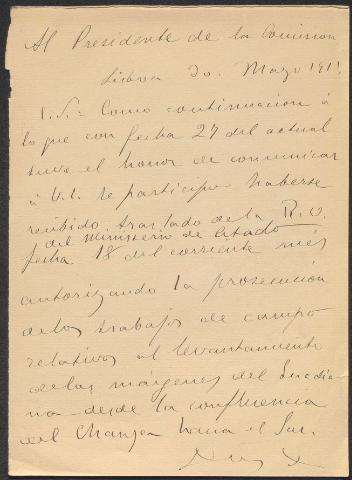 Al Presidente de la Comision
Lisboa 30 Mayo 191
Como continuacion á
lo que con fecha 27 del actual
tuve el honor de comunicar
á V.E. le participo haberse
recibido traslado de la R.O.
del Ministerio de Estado
fecha 18 del corriente més
autorizando la prosecución
de los trabajos de campo
relativos al levantamiento
de las márgenes del Guadia-
na desde la confluencia
del Chanza hacia el Sur.